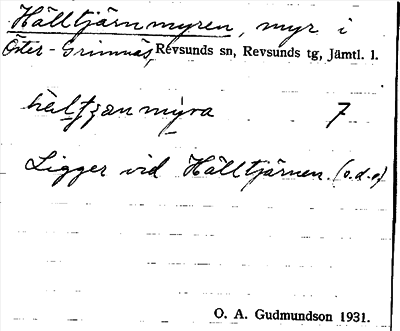 Hälltjärnmyren, myr i
Öster-Grimnäs, Revsunds sn, Revsunds tg, Jämtl. l.
myra 7
Ligger vid Hälltjärnen. (o.d.o)
O. A. Gudmundson 1931.